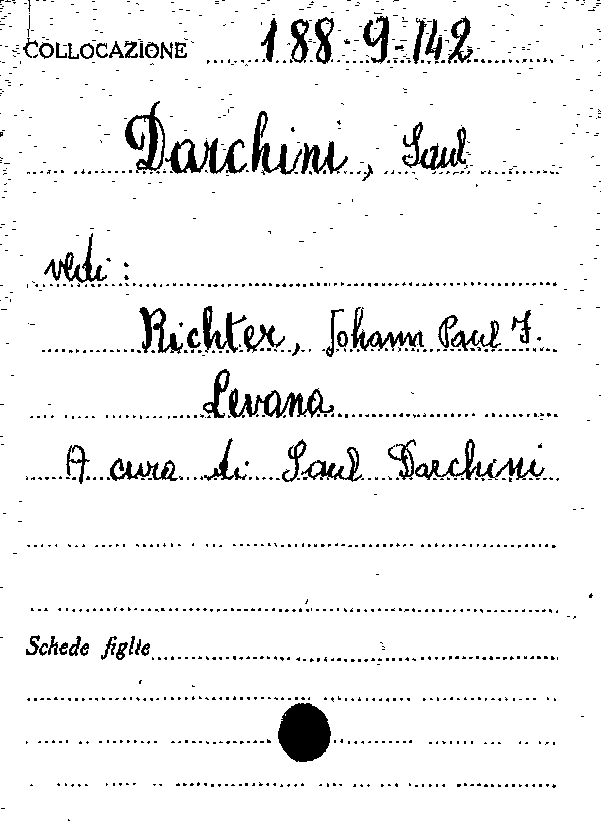 COLLOCAZIONE 188-9-142
Darchini, Saul
vedi:
Richter, Johann Paul F.
Levana
A cura di Saul Darchini
Schede figlie